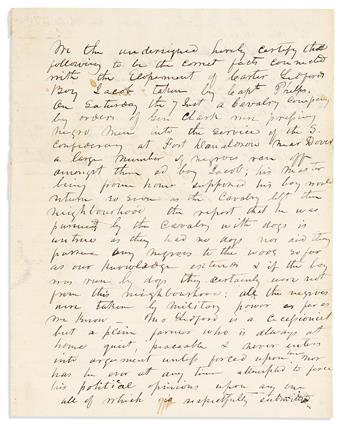 We the undersigned hereby certify the
following to be the correct facts connected
with the Elopement of Carter Ledfords
Boy Jacob taken by Capt Phelps.
On Saturday the 7 Inst a Cavalry Company
by orders of Gen Clark were pressing
Negro Men into the service of the S.
Confederacy at Fort Donaldson Near Dover
a large number of negroes ran off
amongst them sd boy Jacob; his master
being from home supposed his boy would
return so soon as the Cavalry left the
neighbourhood. the report that he was
pursued by the Cavalry with dogs is
untrue as they had no dogs nor did they
pursue any negroes to the woods so far
as our knowledge extends & if the boy
was run by dogs they certainly were not
from this neighbourhood; all the negroes
were taken by military power as far as
we know Mr Ledford is a Secessionist
but a plain farmer who is always at
home quiet, peaceable & never enters
into argument unless forced upon him nor
has he ever at any time attempted to force
his political opinions upon any one
all of which is respectfully submitted